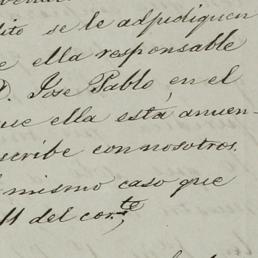 dito se le adjudiquen
ella responsable
D. Jose Pablo, en el
que ella está anuen-
scribe con nosotros.
mismo caso que
11 del corte,